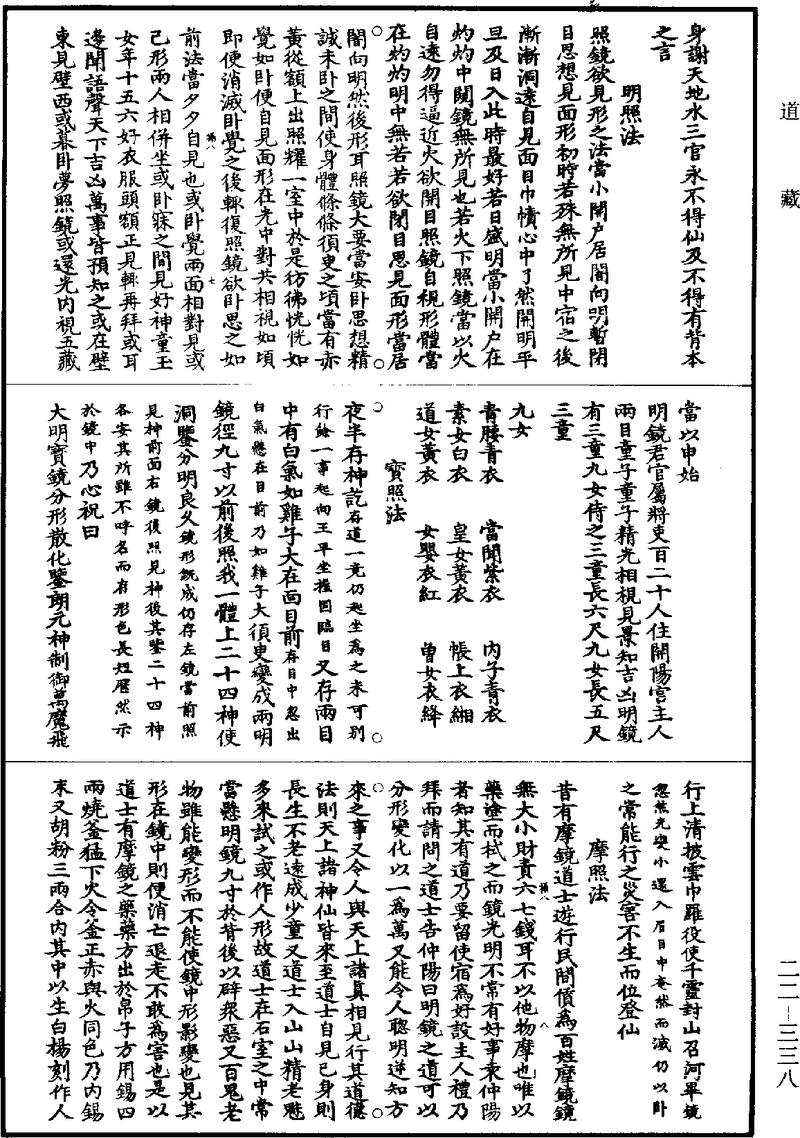 道藏
身謝天地水三官永不得仙及不得有背本
之言
明照法
照鏡欲見形之法當小開户居闇向明暫閉
目思想見面形初時若殊無所見中宿之後
漸漸洞遠自見面目巾幘心中了然開明平
旦及日入此時最好若日盛明當小開户在
灼灼中闚鏡無所見也若火下照鏡當以火
自遠勿得逼近火欲開目照鏡自視形體當
在灼灼明中無若若欲閉目思見面形當居
闇向明然後形耳照鏡大要當安卧思想精
誠未卧之間使身體條條須臾之頃當有赤
黄從額上出照耀一室中於是彷彿恍恍如
覺如卧便自見面形在光中對共相視如頃
即便消滅卧覺之後輒復照鏡欲卧思之如
前法當夕夕自見也或卧覺兩面相對見或
己形兩人相併坐或卧寐之間見好神童玉
女年十五六好衣服頭額正見輒再拜或耳
邊聞語聲天下吉凶萬事皆預知之或在壁
東見壁西或暮卧夢照鏡或還光内視五藏
當以申始
明鏡君官屬將吏百二十人住開陽宫主人
兩目童子童子精光相視見景知吉凶明鏡
有三童九女侍之三童長六尺九女長五尺
三童
九女
青腰青衣 當聞紫衣 内子青衣
素女白衣 皇女黄衣 帳上衣緗
道女黄衣 女嬰衣紅 曾女衣絳
寶照法
夜半存神訖存道一竟仍起坐為之未可别
行餘一事起向王平坐握固臨目又存兩目
中有白氣如雞子大在面目前存目中忽出
白氣懸在目前乃如雞子大須臾變成兩明
鏡徑九寸以前後照我一體上二十四神使
洞鑒分明良久鏡形既成仍存左鏡當前照
見神前面右鏡後照見神後其鑒二十四神
名安其所雖不呼名而存形色長短歷然示
於鏡中乃心祝曰
大明寶鏡分形散化鑒朗元神制御萬魔飛
行上清披雲巾羅役使千靈封山召河畢鏡
忽然光變小還入眉目中奄然而滅仍以卧
之常能行之災害不生而位登仙
摩照法
昔有摩鏡道士遊行民間賃為百姓摩鏡鏡
無大小財責六七錢耳不以他物摩也唯以
藥塗而拭之而鏡光明不常有好事袁仲陽
者知其有道乃要留使宿為好設主人禮乃
拜而請問之道士告仲陽曰明鏡之道可以
分形變化以一為萬又能令人聰明逆知方
來之事又令人與天上諸真相見行其道德
法則天上諸神仙皆來至道士自見己身則
長生不老遠成少童又道士入山山精老魅
多來試之或作人形故道士在石室之中常
當懸明鏡九寸於背後以辟衆惡又百鬼老
物雖能變形而不能使鏡中形影變也見其
形在鏡中則便消亡退走不敢為害也是以
道士有摩鏡之藥藥方出於帛子方用錫四
兩燒釜猛下火令釜正赤與火同色乃内錫
末又胡粉三兩合内其中以生白楊刻作人
二二-三三八